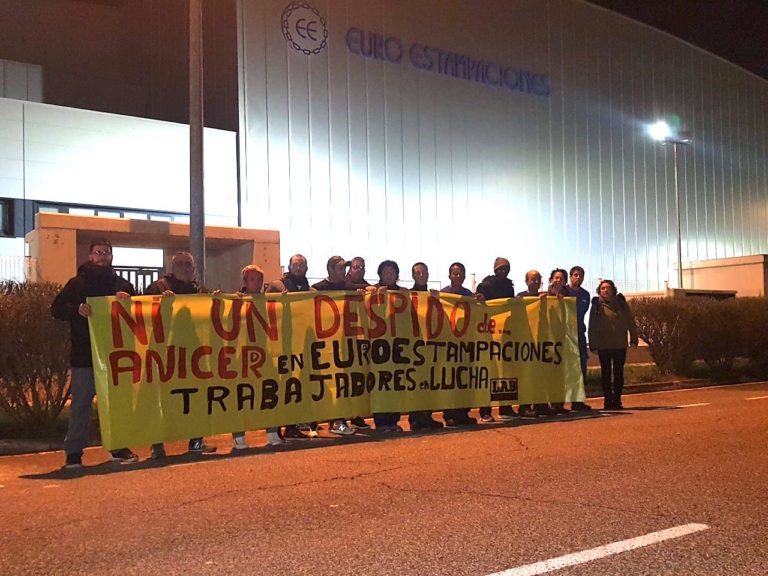 EE
EURO ESTAMPACIONES
NI UN DESPIDO de...
ANICER EN EUROESTAMPACIONES
TRABAJADORES en LUCHA I.A.S